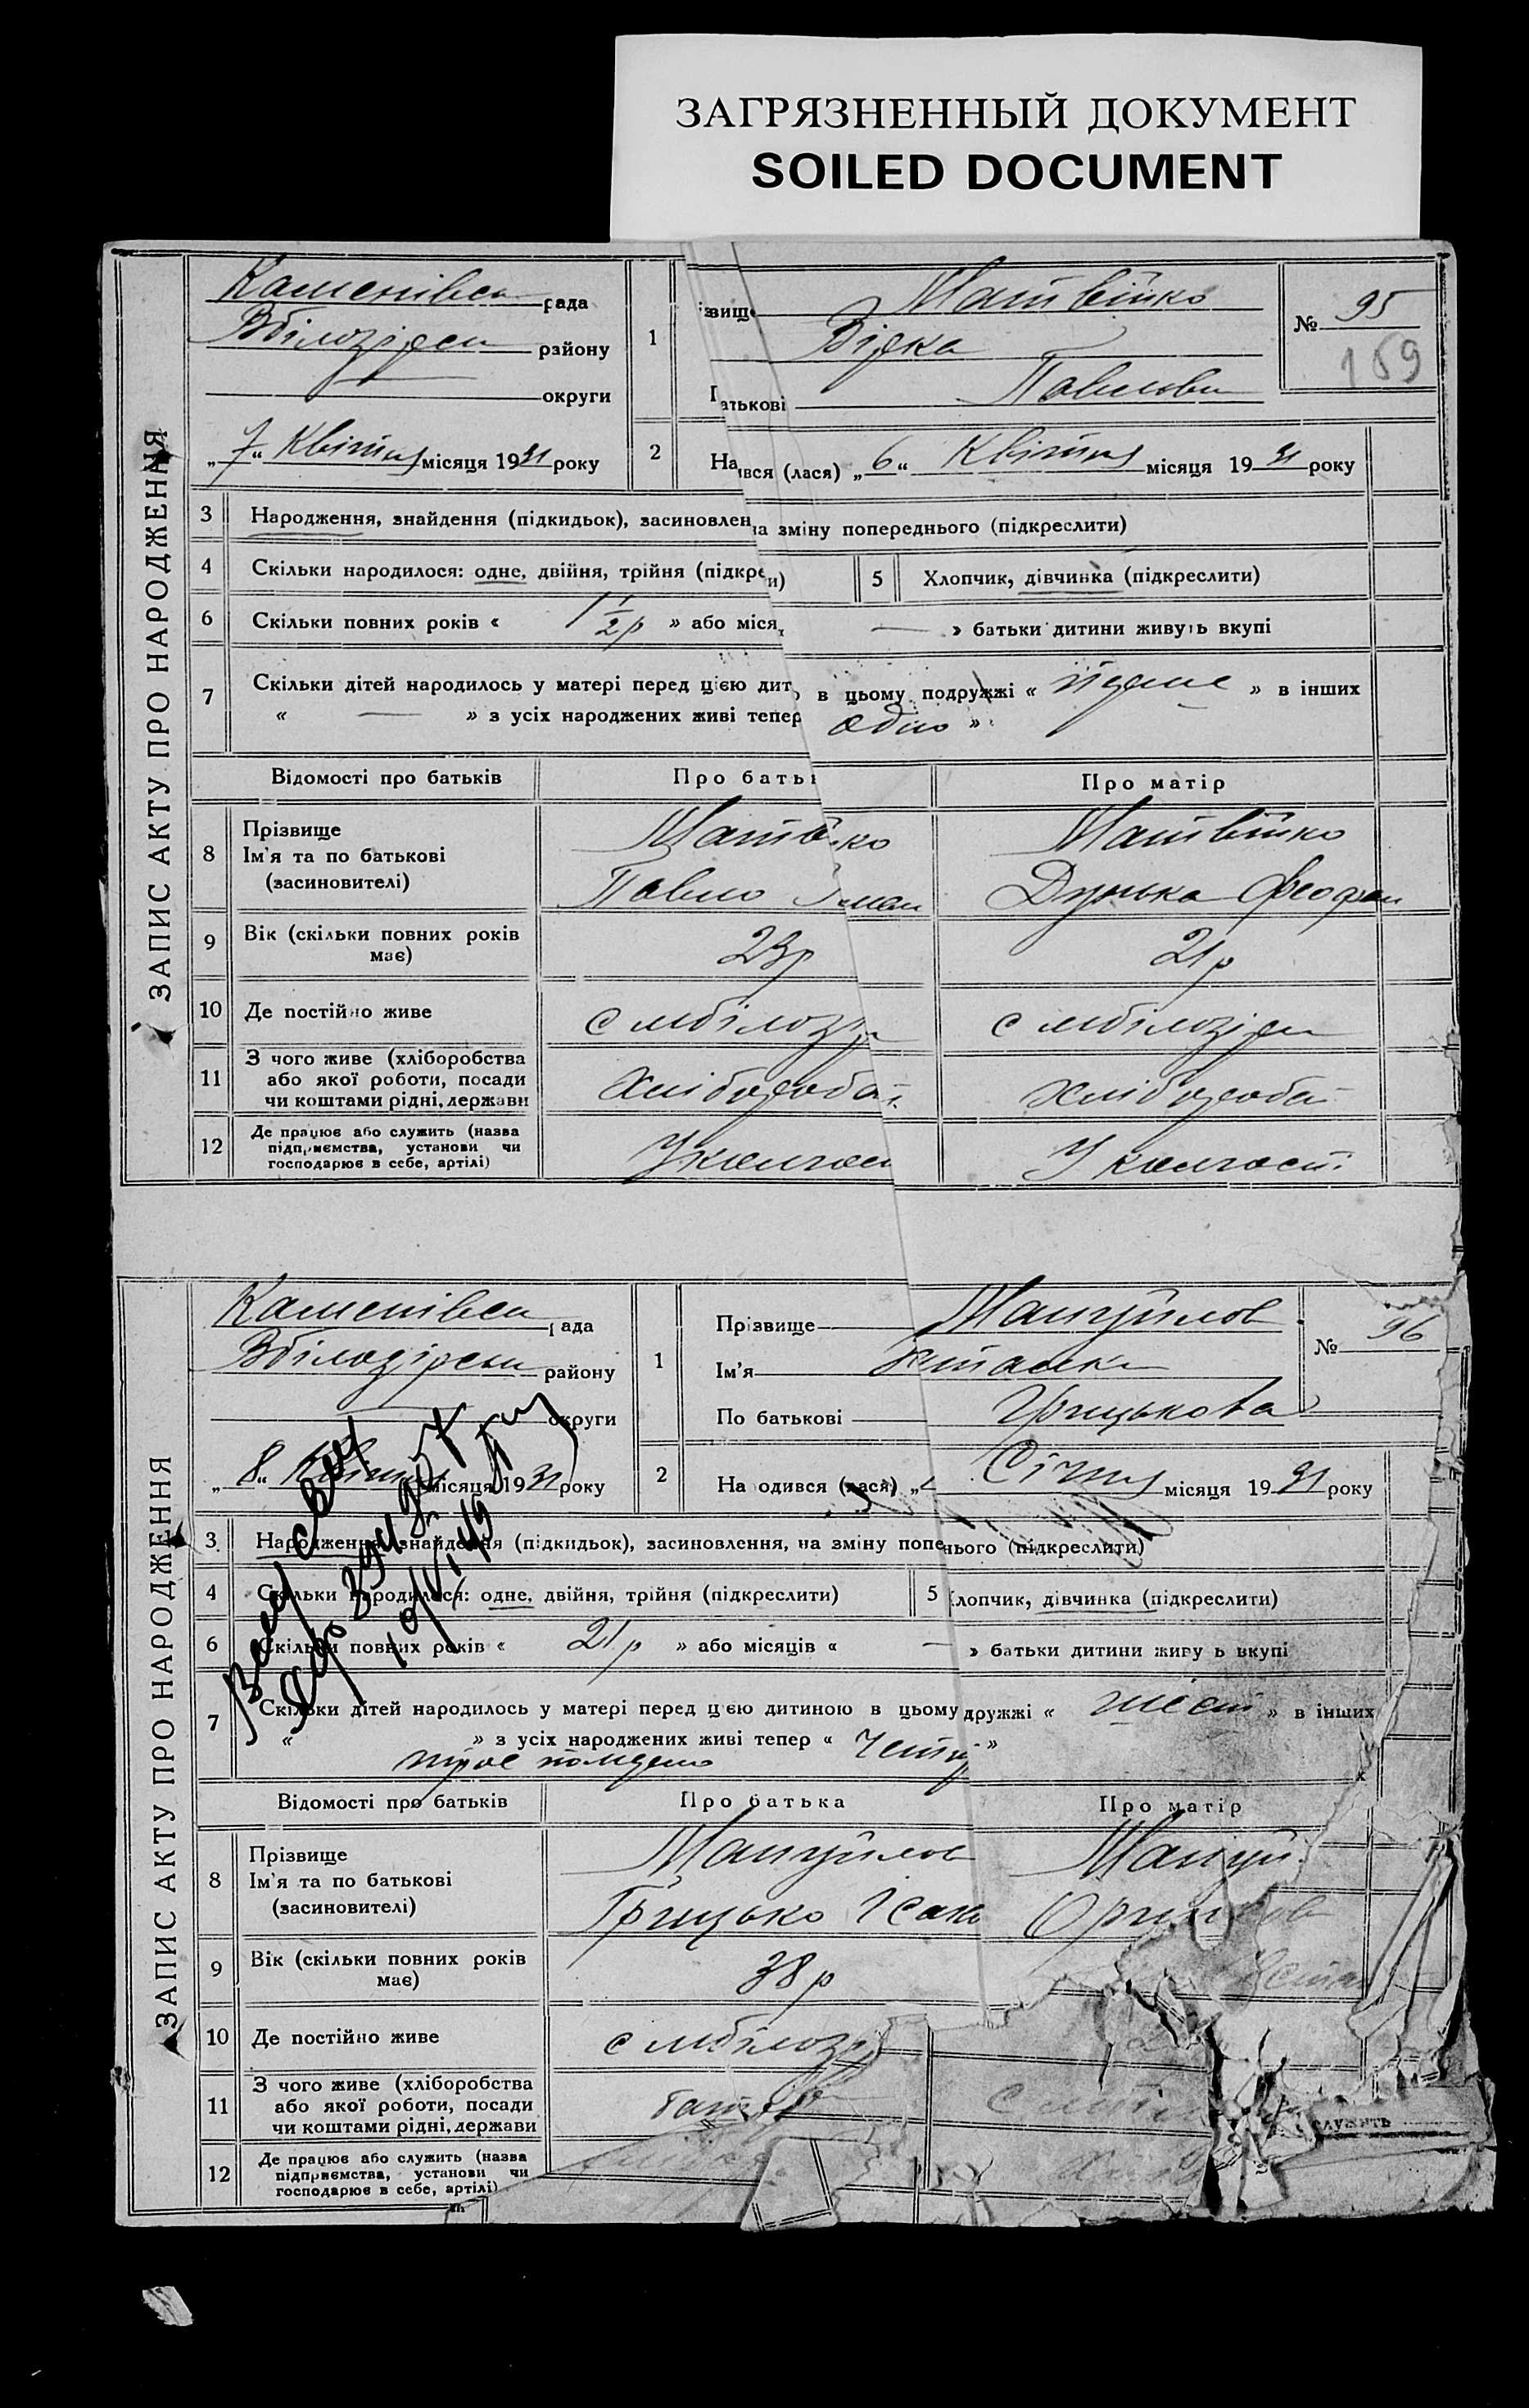 ЗАГРЯЗНЕННЫЙ ДОКУМЕНТ
SOILED DOCUMENT
ЗАПИС АКТУ ПРО НАРОДЖЕННЯ
Каменівсь рада
Вбілозірсь району
округи
„7“ Квітня місяця 1931 року
1
звище Матвійко
Вірка
Патькові Павлова
№ 95
169
2 На вся (лася) „6“ Квітня місяця 1931 року
3 Народження, знайдення (підкидьок), засиновлен на зміну попереднього (підкреслити)
4 Скільки народилося: одне, двійня, трійня (підкре и) 5 Хлопчик, дівчинка (підкреслити)
6 Скільки повних років « 1 1/2 р » або міся — » батьки дитини живуть вкупі
7 Скільки дітей народилось у матері перед цією дит в цьому подружжі « » в інших
« — » з усіх народжених живі тепер одно »
Відомості про батьків Про бать Про матір
8 Прізвище Мат ко Матвійко
Ім'я та по батькові Павло Дунька Феофан
(засиновителі)
9 Вік (скільки повних років має) 23р 21р
10 Де постійно живе с мбілозір с мбілозірка
11 З чого живе (хліборобства або якої роботи, посади чи коштами рідні, держави Хлібороб Хлібороб
12 Де працює або служить (назва підприємства, установи чи господарює в себе, артілі) У колгосп У колгоспі
ЗАПИС АКТУ ПРО НАРОДЖЕННЯ
Каменівсь рада
Вбілозірськ району
округи
„8“ Квітня місяця 1931 року
1
Прізвище Мануйлов
Ім'я
По батькові Грицькова
№ 96
2 На одився (лася) „ Січня місяця 1931 року
3 Народження, знайдення (підкидьок), засиновлення, на зміну попе нього (підкреслити)
4 Скільки народилося: одне, двійня, трійня (підкреслити) 5 лопчик, дівчинка (підкреслити)
6 Скільки повних років « 21р » або місяців « — » батьки дитини живу ь вкупі
7 Скільки дітей народилось у матері перед цією дитиною в цьому дружжі « шість » в інших
« » з усіх народжених живі тепер « »
троє померло
Відомості про батьків Про батька Про матір
8 Прізвище Мануйлов Мануй
Ім'я та по батькові Грицько Ісаков
(засиновителі)
9 Вік (скільки повних років має) 38р
10 Де постійно живе с мбілозір
11 З чого живе (хліборобства або якої роботи, посади чи коштами рідні, держави
12 Де працює або служить (назва підприємства, установи чи господарює в себе, артілі)
служить